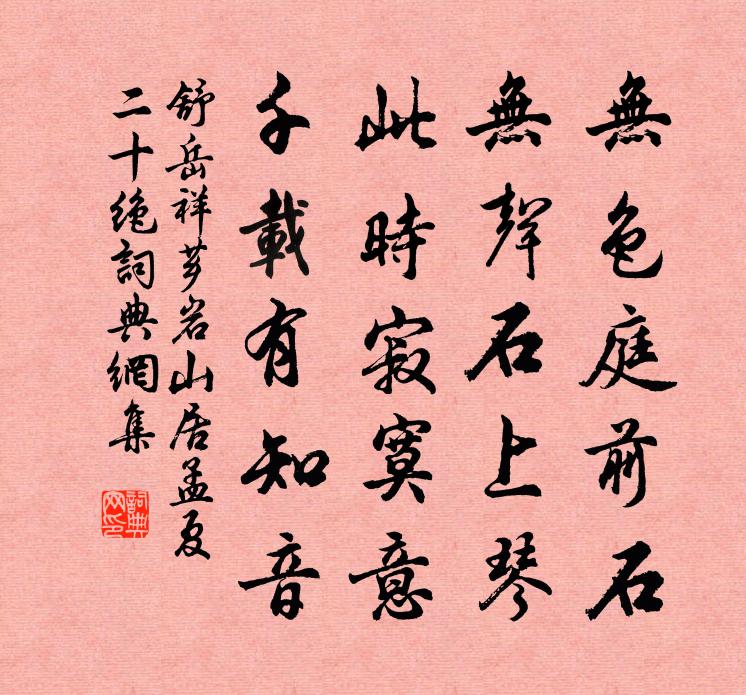 無色庭前石
無聲石上琴
此時寂寞意
千載有知音
舒岳祥芗岩山居孟夏
二十绝詞典網集
詞典网印